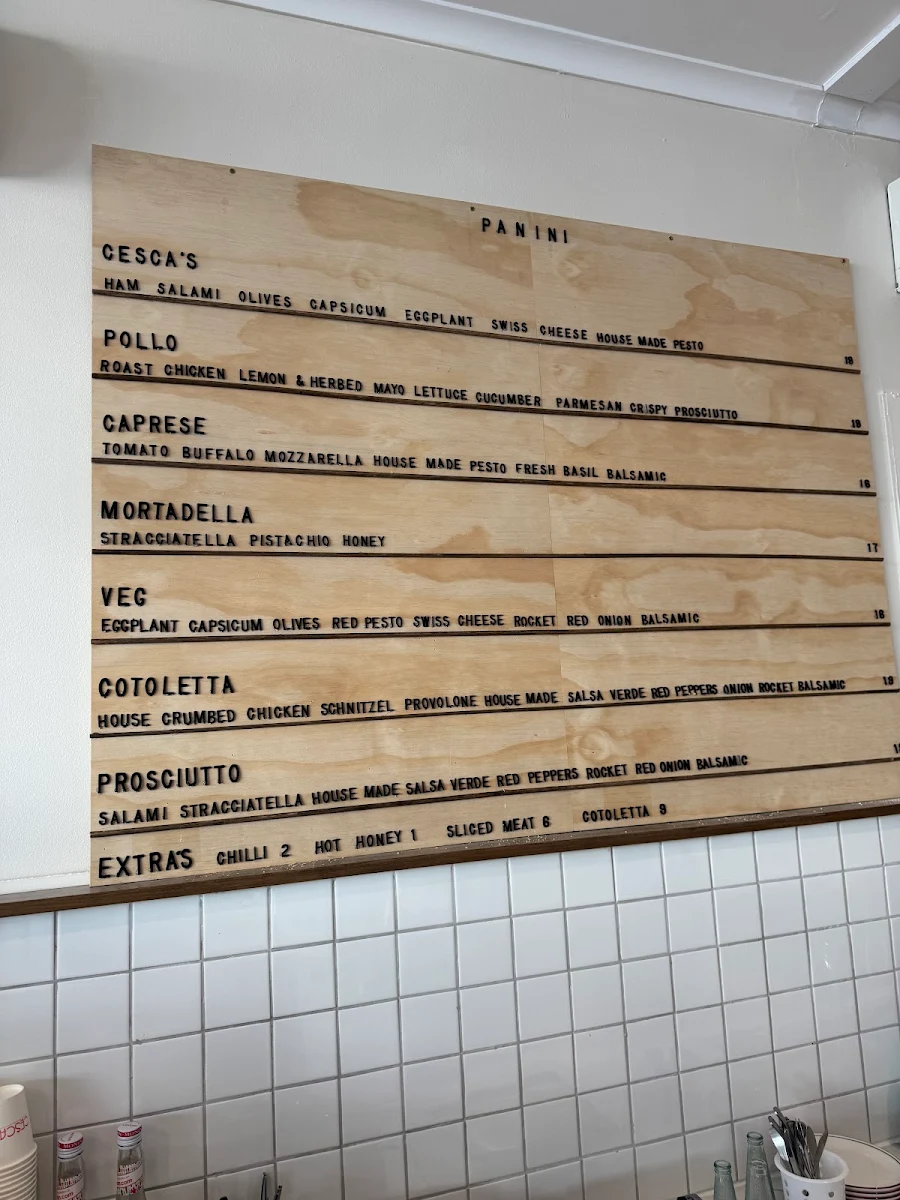 PANINI
CESCA'S
HAM SALAMI OLIVES CAPSICUM EGGPLANT SWISS CHEESE HOUSE MADE PESTO 18
POLLO
ROAST CHICKEN LEMON & HERBED MAYO LETTUCE CUCUMBER PARMESAN CRISPY PROSCIUTTO 19
CAPRESE
TOMATO BUFFALO MOZZARELLA HOUSE MADE PESTO FRESH BASIL BALSAMIC 16
MORTADELLA
STRACCIATELLA PISTACHIO HONEY 17
VEG
EGGPLANT CAPSICUM OLIVES RED PESTO SWISS CHEESE ROCKET RED ONION BALSAMIC 16
COTOLETTA
HOUSE CRUMBED CHICKEN SCHNITZEL PROVOLONE HOUSE MADE SALSA VERDE RED PEPPERS ONION ROCKET BALSAMIC 19
PROSCIUTTO
SALAMI STRACCIATELLA HOUSE MADE SALSA VERDE RED PEPPERS ROCKET RED ONION BALSAMIC
EXTRA'S CHILLI 2 HOT HONEY 1 SLICED MEAT 6 COTOLETTA 9